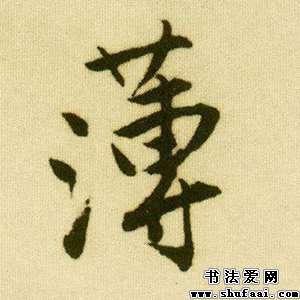 薄
书法爱网
www.shufaai.com